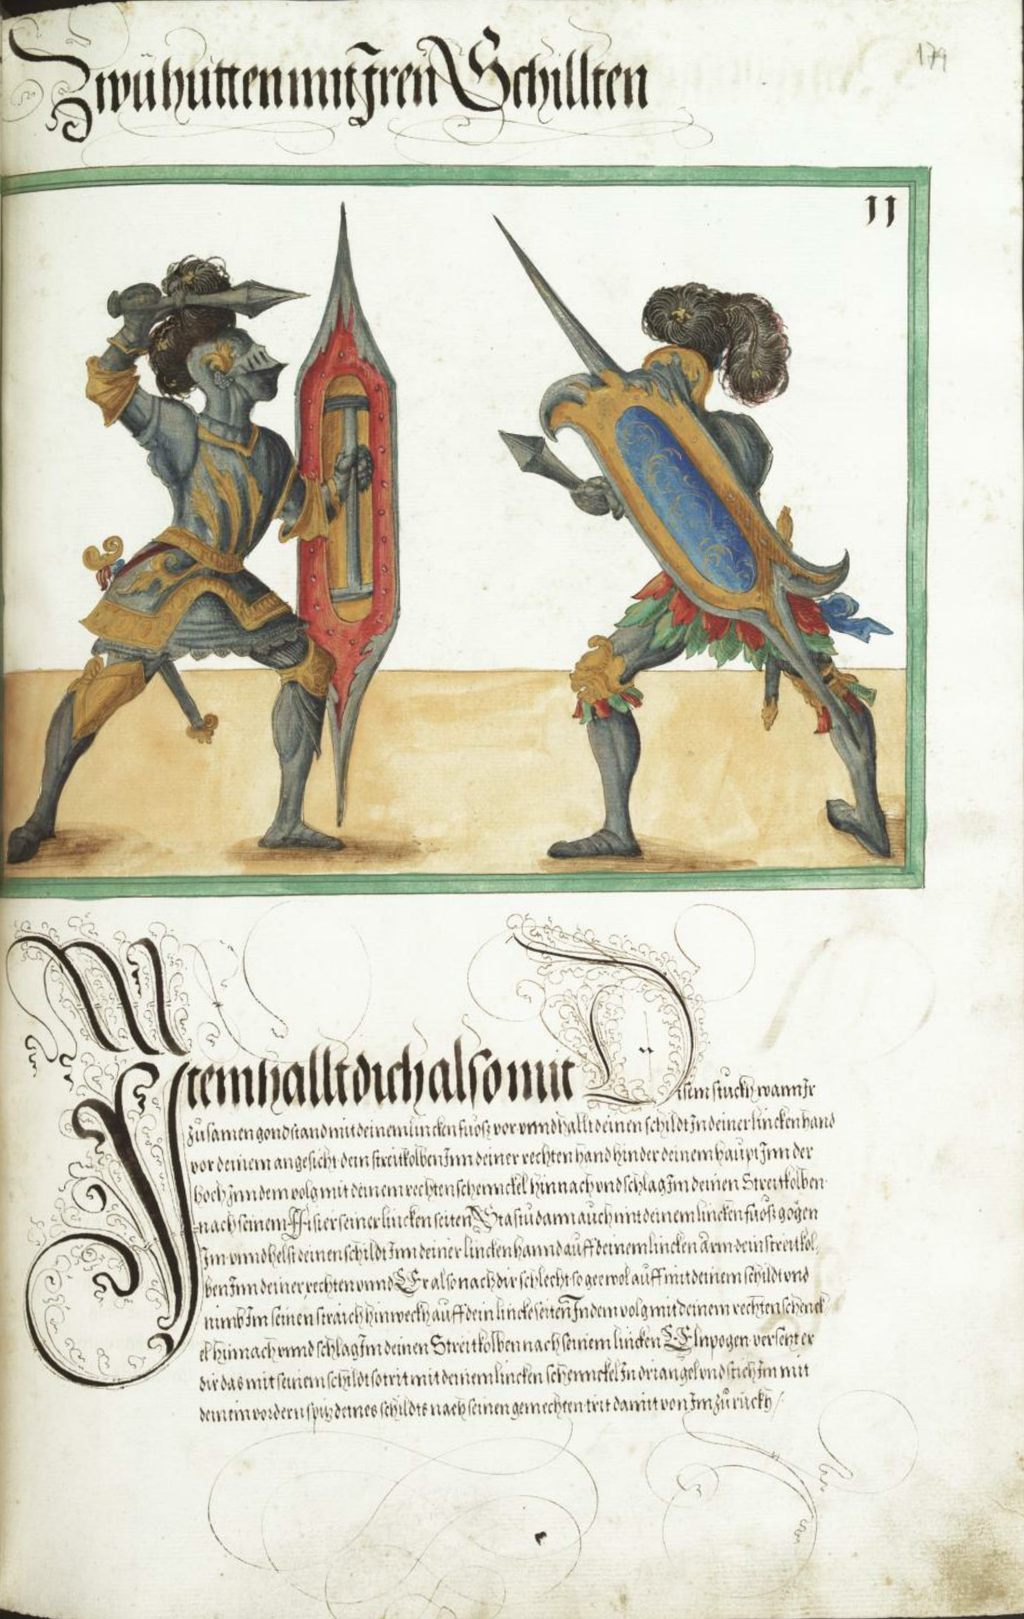 Zwů hütten mit Jren Schillten
179
11
Jtem hallt dich also mit Disem stuckh wann Jr
zů samen gond stand mit deinem lincken fůosz vor vnnd hallt deinen schildt Jn deiner lincken hand
vor deinem angesicht dein streitkolben Jnn deiner rechten hand hinder deinem haupt Jnn der
hoch Jnn dem volg mit deinem rechten schennckel hinnach vnd schlag Jm deinen Streitkolben
nach seinem seiner lincken seiten Stastu dann auch mit deinem lincken fůosz gögen
Jm vnnd helst deinen schildt Jnn deiner lincken hannd auff deinem lincken Arm dein streitkol,
ben Jnn deiner rechten vnnd Er also nach dir schlecht so gee wol auff mit deinem schildt vnd
nimb Jm seinen straich hinweckh auff dein lincke seiten Jn dem volg mit deinem rechten schenck,
el hinnach vnnd schlag Jm deinen Streitkolben nach seinem lincken Elnpogen versetzt er
dir das mit seinem schildt so trit mit deinem lincken schennckel Jn driangel vnd stich Jm mit
deinem vordern spitz deines schildts nach seinen gemechten trit damit von Jm zů růckh /